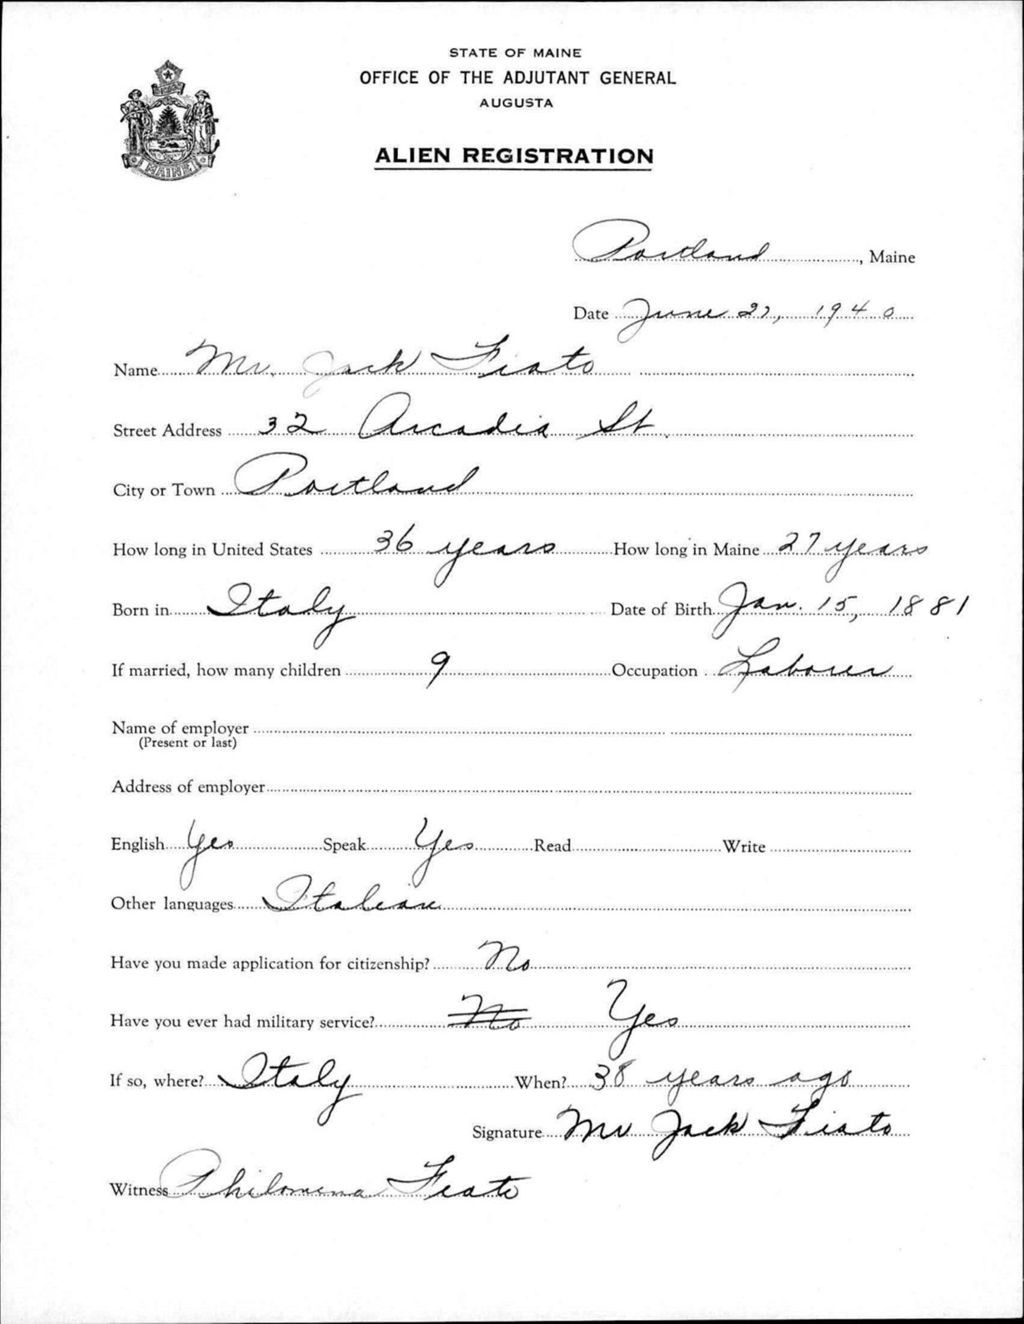 STATE OF MAINE
OFFICE OF THE ADJUTANT GENERAL
AUGUSTA
ALIEN REGISTRATION
MAINE
Portland, Maine
Date June 27, 1940
Name Mr. Jack Fiato
Street Address 32 Arcadia St.
City or Town Portland
How long in United States 36 years How long in Maine 27 years
Born in Italy Date of Birth Jan. 15, 1881
If married, how many children 9 Occupation Laborer
Name of employer
(Present or last)
Address of employer
English Yes Speak Yes Read Write
Other languages Italian
Have you made application for citizenship? No
Have you ever had military service? No Yes
If so, where? Italy When? 38 years ago
Signature Mr Jack Fiato
Witness Philomena Fiato